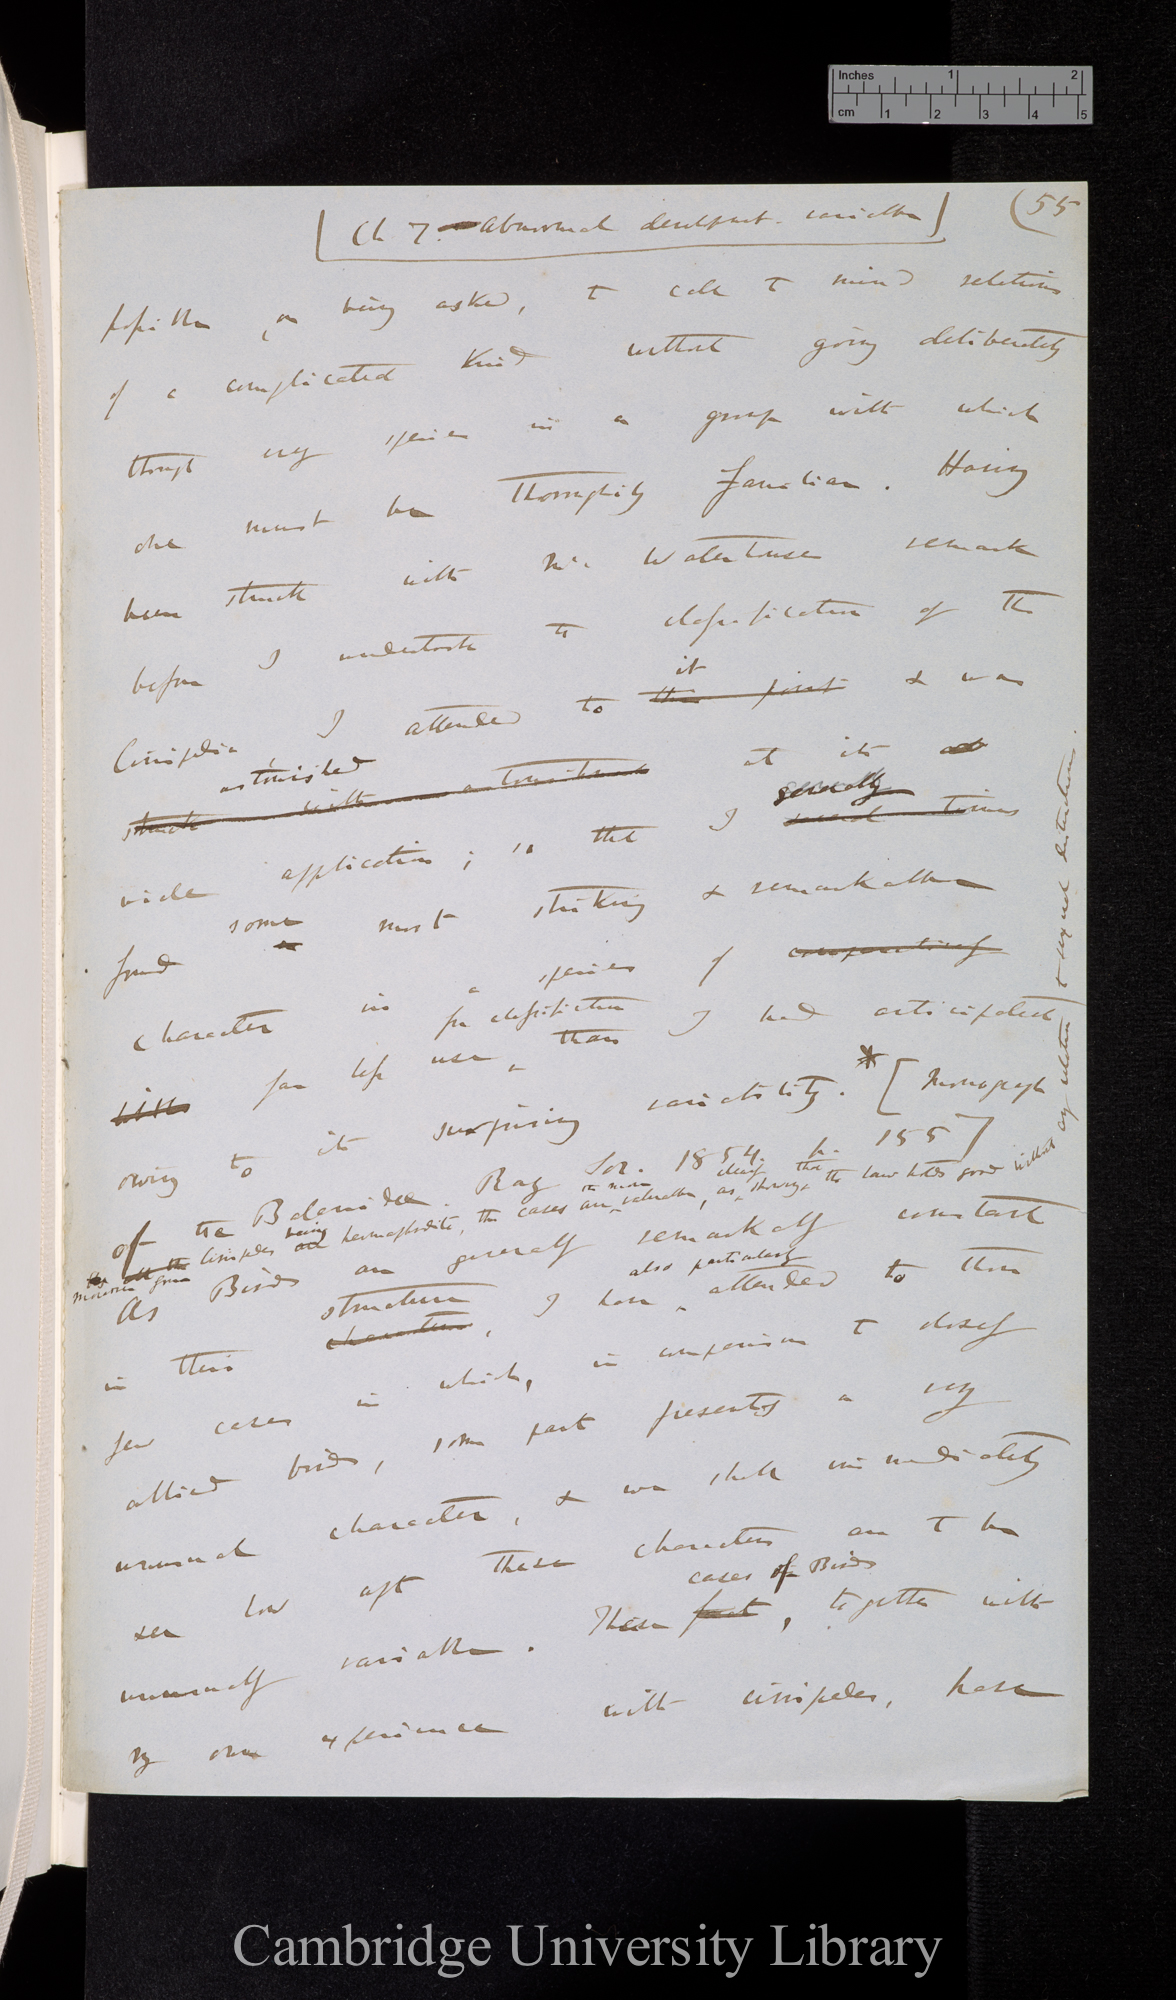 Inches 1 2
cm 1 2 3 4 5
[Ch 7. Abnormal developmt. variable]
(55
possible, on being asked, to call to mind relations
of a complicated kind without going deliberately
through every species in a group with which
one must be thoroughly familiar. Having
been struck with Mr. Waterhouse remark
before I undertook the classification of the
it
Cirripedia I attended to this point & was
astonished
struck with astonishment at its
generally
wide application; in that I several times
found some most striking & remarkable
character in a species of
for classification
far less use, than I had anticipated
owing to its surprising variability.* [Monograph
of the Balanidæ. Ray Soc. 1854. p. 155]
Moreover from all the Cirripedes being are hermaphrodite, the cases are the more valuable, as clearly showing that the law holds good without any relation to sexual distinctions.
As Birds are generally remarkably constant
structure also particularly
in their characters, I have attended to those
few cases in which, in comparison to closely
allied birds, some part presents a very
unusual character, & we shall immediately
see how apt these characters are to be
cases of Birds
unusually variable. These fact, together with
my own experience with cirripedes, have
Cambridge University Library